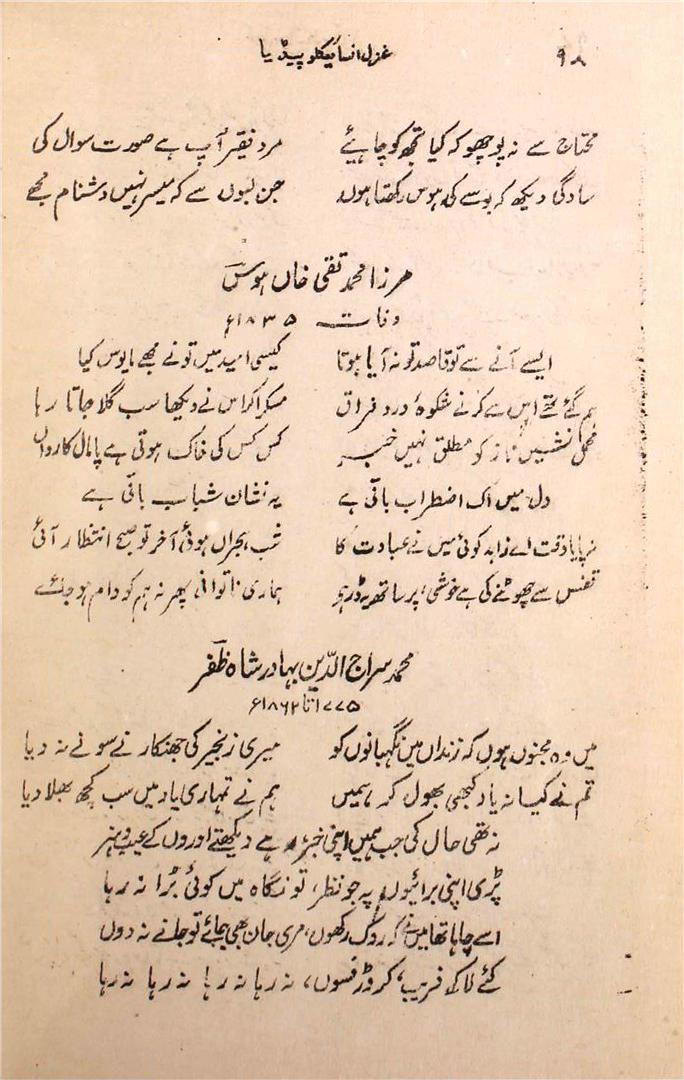 ۹۸
غزل انسائیکلو پیڈیا
محتاج سے نہ پوچھو کہ کیا تجھ کو چاہیے مرد فقیر آپ ہے صورت سوال کی
سادگی دیکھ کہ بوسے کی ہوس رکھتا ہوں جن لبوں سے کہ میسر نہیں دشنام مجھے
مرزا محمد تقی خاں ہوس
وفات ۱۸۳۵ء
ایسے آنے سے تو قاصد تو نہ آیا ہوتا کیسی امید میں تو نے مجھے مایوس کیا
ہم گئے تھے اس سے کرنے شکوۂ درد فراق مسکرا کر اس نے دیکھا سب گلا جاتا رہا
محمل نشین ناز کو مطلق نہیں خبر کس کس کی خاک ہوتی ہے پامال کارواں
دل میں اک اضطراب باقی ہے یہ نشان شباب باقی ہے
نہ پایا وقت اے زاہد کوئی میں نے عبادت کا شب ہجراں ہوئی آخر تو صبح انتظار آئی
قفس سے چھوٹنے کی ہے خوشی، پر ساتھ یہ ڈر ہے ہماری ناتوانی پھر نہ ہم کو دام ہو جائے
محمد سراج الدین بہادر شاہ ظفر
۱۷۷۵ تا ۱۸۶۲ء
میں وہ مجنوں ہوں کہ زنداں میں نگہبانوں کو میری زنجیر کی جھنکار نے سونے نہ دیا
تم نے کیا نہ یاد کبھی بھول کر ہمیں ہم نے تمہاری یاد میں سب کچھ بھلا دیا
نہ تھی حال کی جب ہمیں اپنی خبر، رہے دیکھتے اوروں کے عیب و ہنر
پڑی اپنی برائیوں پہ جو نظر، تو نگاہ میں کوئی برا نہ رہا
اسے چاہا تھا میں نے کہ روک رکھوں، مری جان بھی جائے تو جانے نہ دوں
کئے لاکھ فریب، کروڑ فسوں، نہ رہا نہ رہا نہ رہا نہ رہا